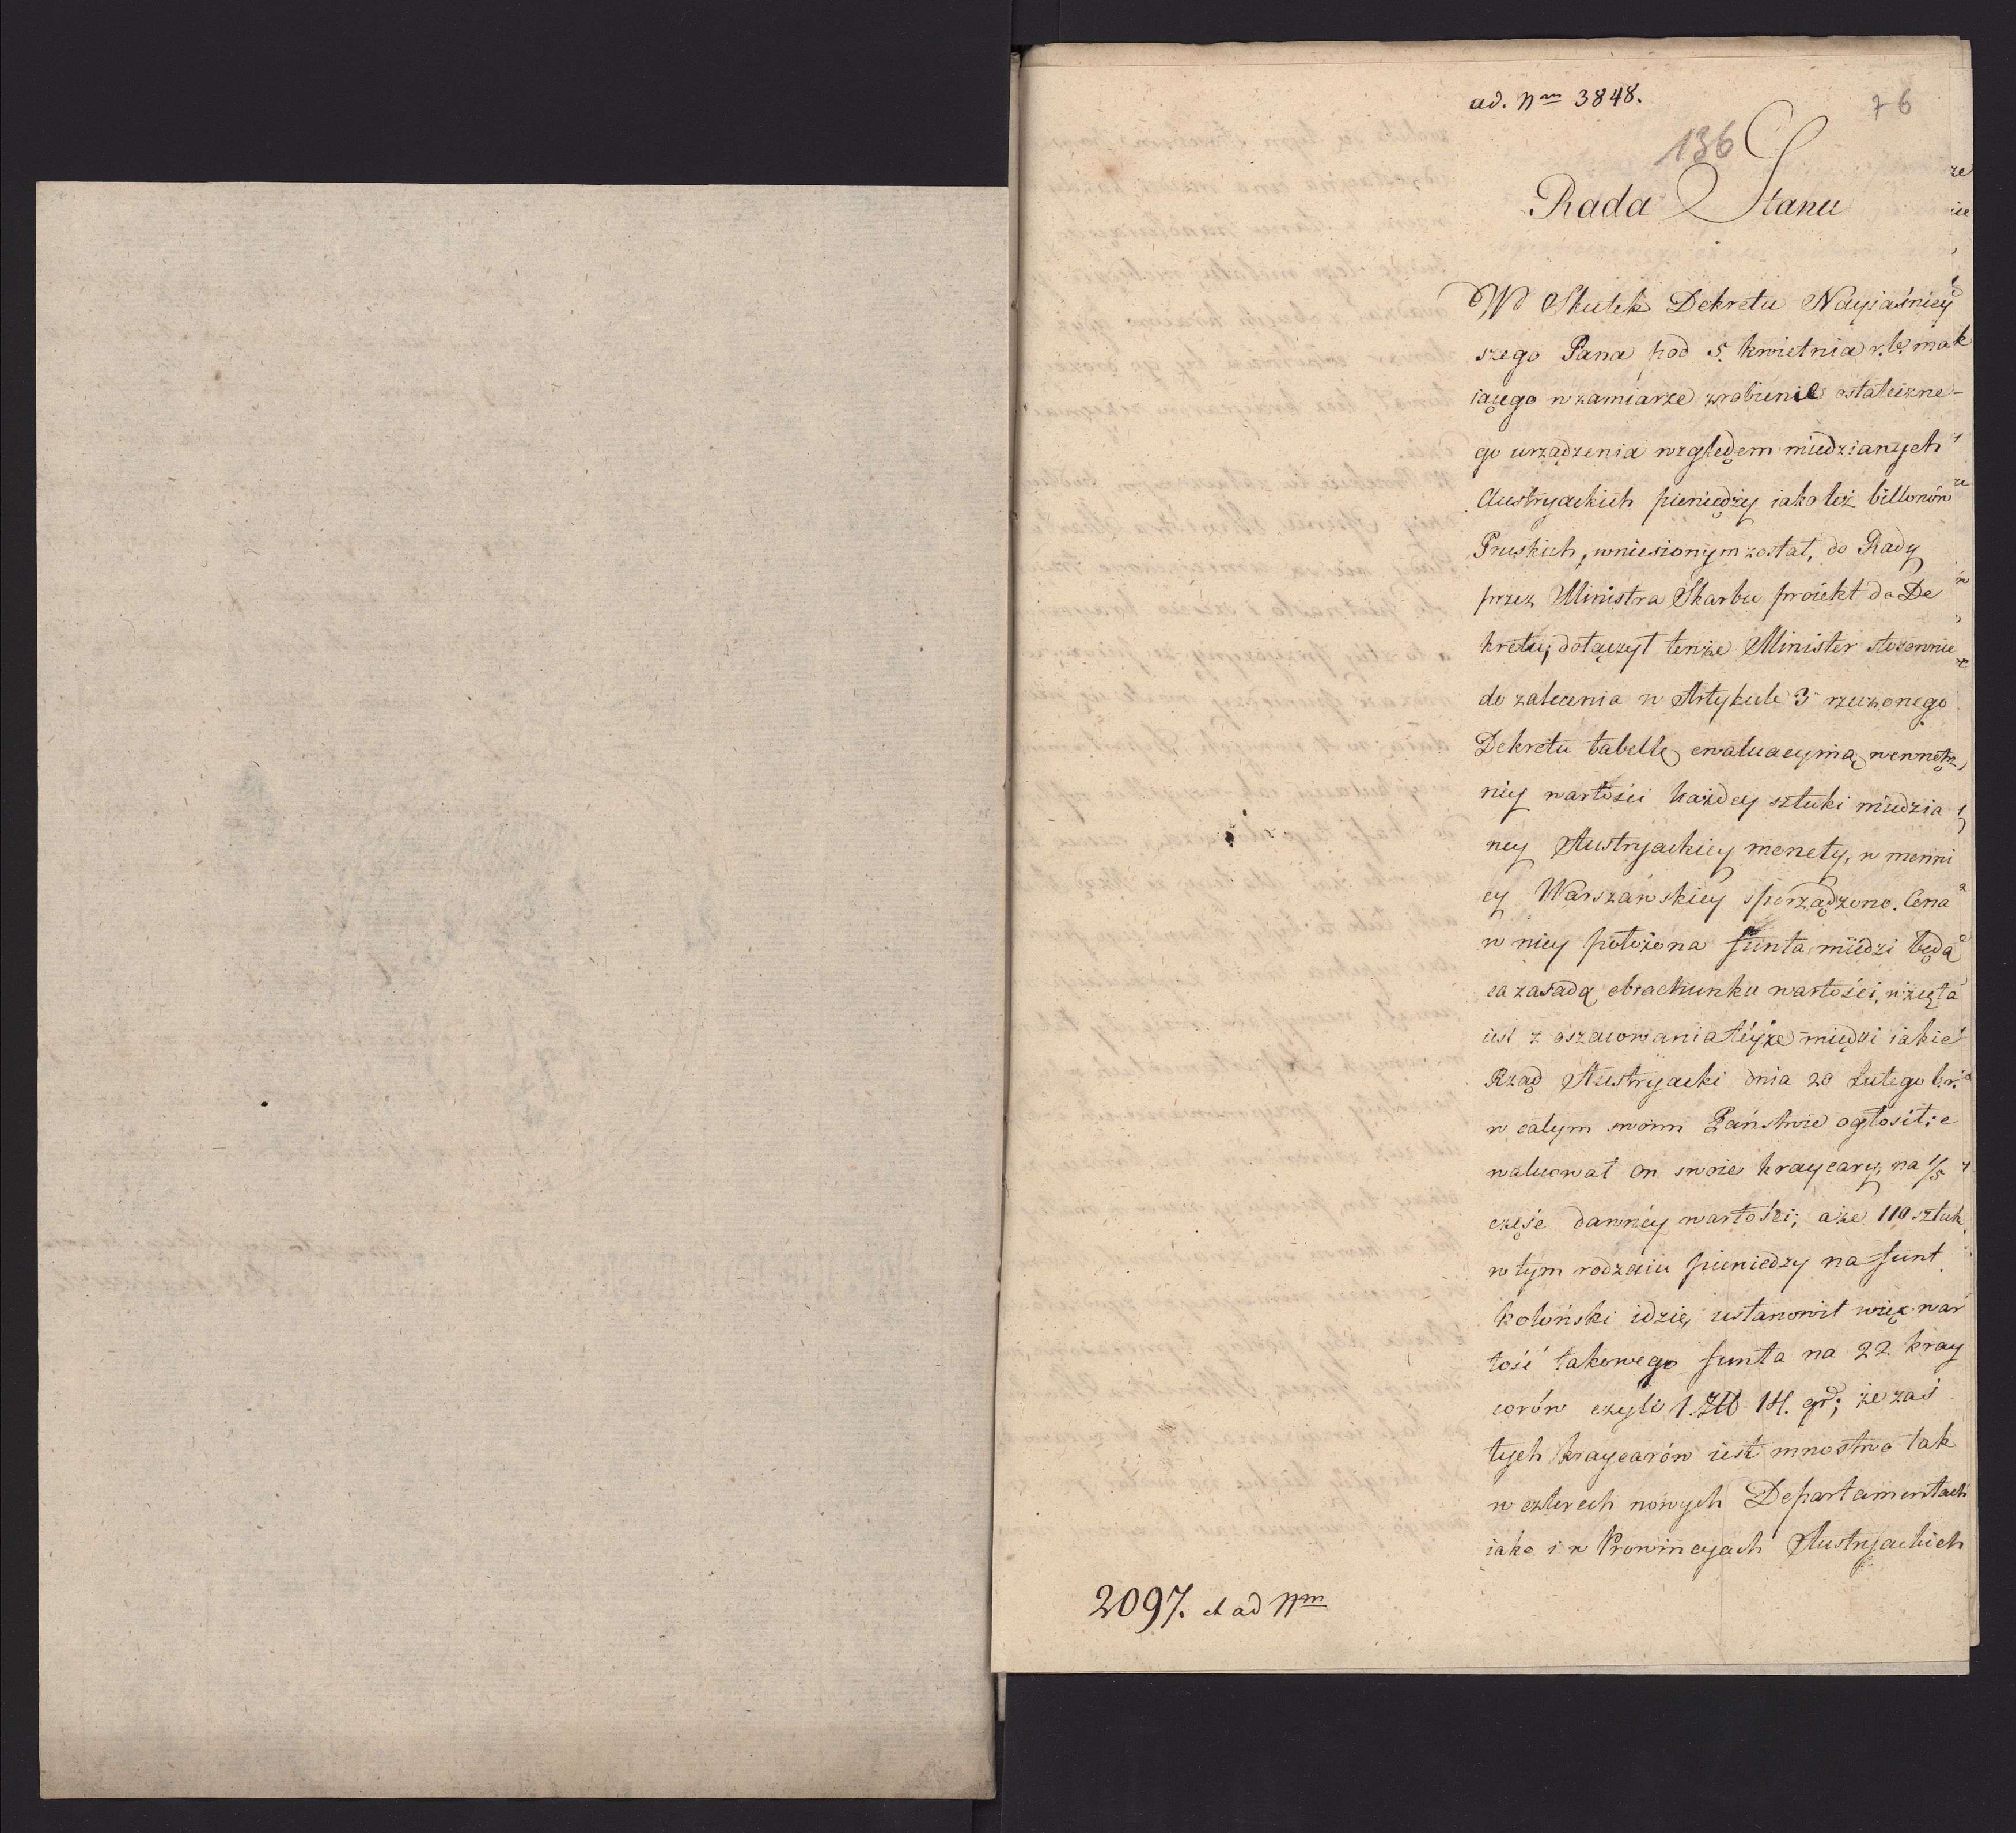 ad. Nm 3848.
76
136
Rada Stanu
W Skutek Dekretu Nayiaśniey
szego Pana pod 5. kwietnia r. b. ma
iącego w zamiarze zrobienie ostateczne-
go urządzenia względem miedzianych
Austryackich pieniędzy iako też billonów
Pruskich, wniesionym został, do Rady
przez Ministra Skarbu proiekt do De
kretu; dołączył tenże Minister stosownie
do zalecenia w Artykule 3 rzeczonego
Dekretu tabellę ewaluacyiną wewnętrz
ney wartości każdey sztuki miedzia
ney Austryackiey monety, w menni
cy Warszawskiey sporządzono. Cena
w niey położona funta miedzi będą
ca zasadą obrachunku wartości, wzięta
iest z oszacowania teyże miedzi iakie
Rząd Austryacki dnia 20 Lutego b. r.
w całym swoim Państwie ogłosił; e
waluował on swoie kraycary, na 1/5
część dawney wartości; a że 110 sztuk
w tym rodzaiu pieniędzy na funt
koloński idzie, ustanowił więc war
tość takowego funta na 22 kray
corów czyli 1. Złł 14. gr; że zaś
tych kraycarów iest mnostwo tak
w czterech nowych Departamentach
iako i w Prowincyach Austryackich
2097. et ad Nm